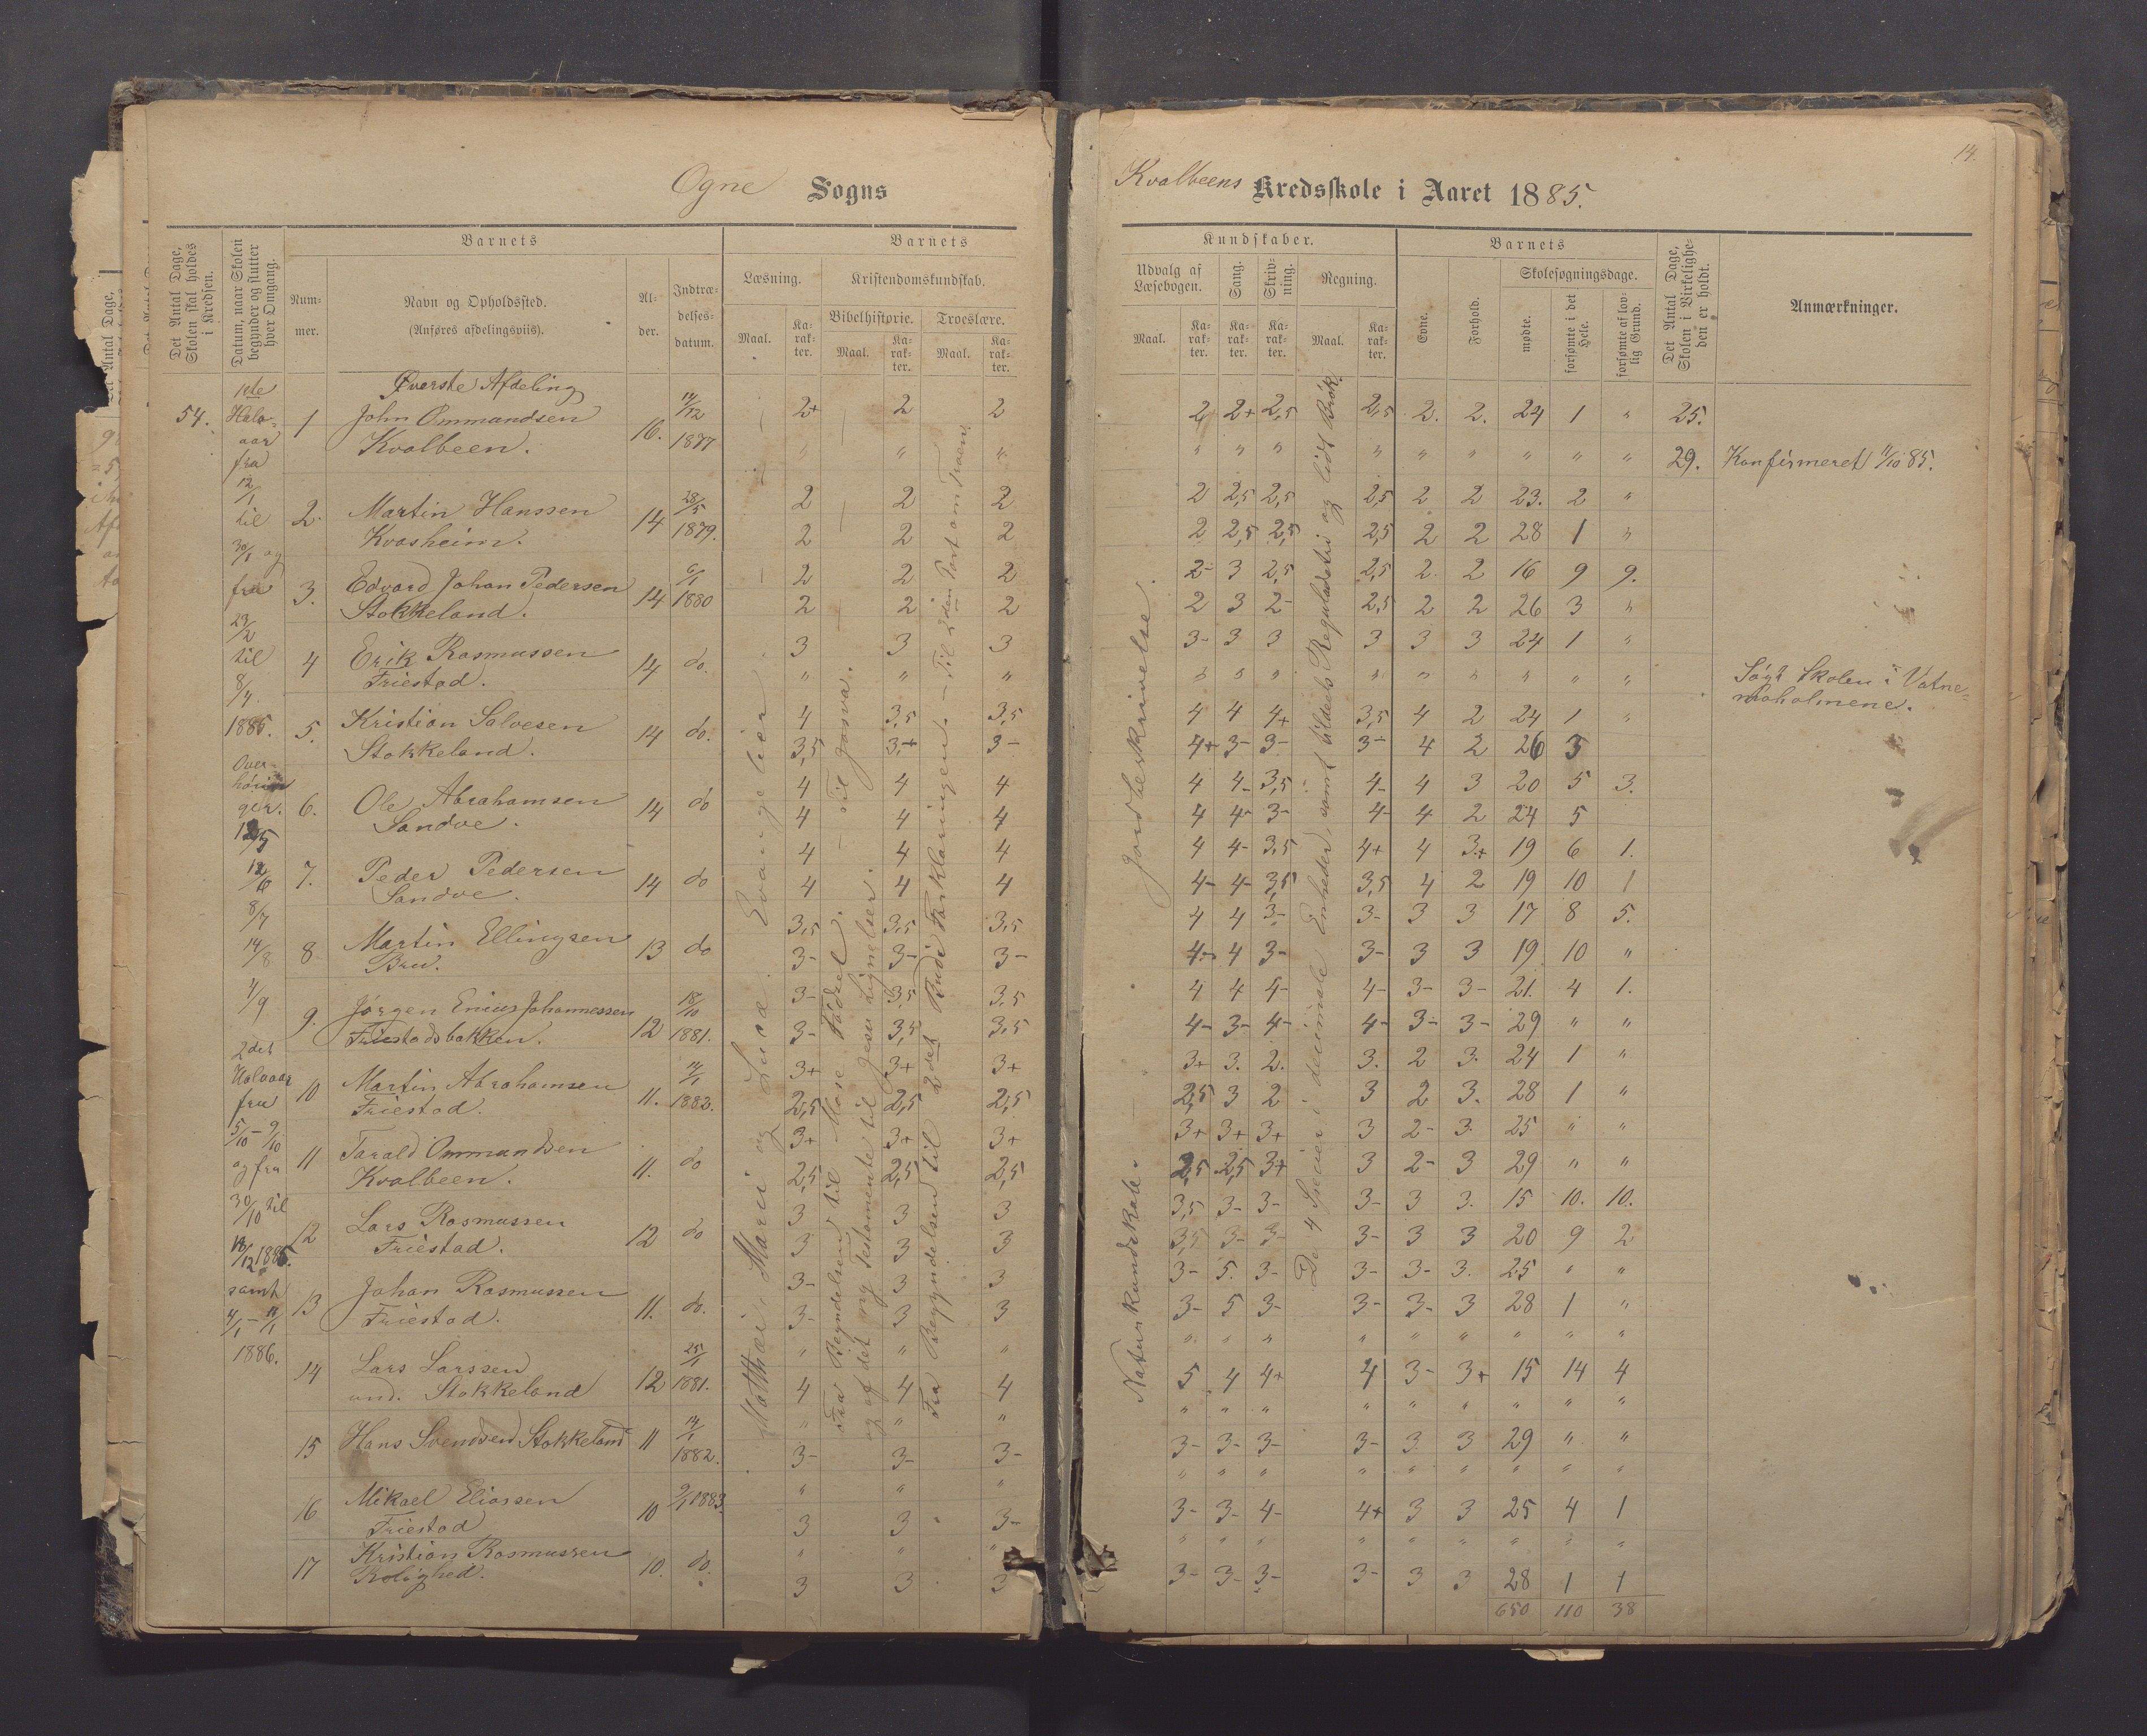 Ogne Sogns
Kvalbeens Kredsskole i Aaret 1885.
14.
Det Antal Dage, Skolen skal holdes i Kredsen.
Datum, naar Skolen begynder og slutter hver Omgang.
Barnets
Nummer.
Navn og Opholdssted.
(Anføres afdelingsviis).
Alder.
Indtrædelsesdatum.
Barnets
Læsning.
Kristendomskundskab.
Bibelhistorie.
Troeslære.
Maal.
Karakter.
Maal.
Karakter.
Maal.
Karakter.
Kundskaber.
Udvalg af Læsebogen.
Sang.
Skrivning.
Regning.
Maal.
Karakter.
Karakter.
Karakter.
Maal.
Karakter.
Barnets
Evne.
Forhold.
Skolesøgningsdage.
mødte.
forsømte i det Hele.
forsømte af lovlig Grund.
Det Antal Dage, Skolen i Virkeligheden er holdt.
Anmærkninger.
54.
1ste
Halvaar
fra
12/1
til
30/1 og
fra
23/2
til
8/4
1885.
Overhøringer.
12/6
8/7
14/8
4/9
2det
Halvaar
fra
5/10 – 9/10
og fra
30/10 til
18/12 1885.
samt
4/1 –
1886.
Øverste Afdeling
1 John Ommundsen Kvalbeen. 16. 14/12 1877 2+ 2 2 2 2+ 2,5 2,5 2. 2. 24 1 " 25.
" " " " " " " " " " " " 29. Konfirmeret 11/10 85.
2. Martin Hanssen Kvasheim. 14 28/5 1879. 2 2 2 2 2,5 2,5 2,5 2 2 23. 2 "
2 2 2 2 2,5 2,5 2,5 2 2 28 1 "
3. Edvard Johan Pedersen Stokkeland. 14 6/1 1880 2 2 2 2- 3 2,5 2,5 2 2 16 9 9.
2 2 2 2 3 2- 2,5 2 2 26 3 "
4 Erik Rasmussen Friestad. 14 do. 3 3 3 3- 3 3 3 3 3 24 1 "
" " " " " " " " " " " " Søgt Skolen i Vatnemoholmene.
5. Kristian Salvesen Stokkeland. 14 do. 4 3,5 3,5 4 4 4+ 3,5 4 2 24 1 "
3,5 3,+ 3- 4+ 3- 3- 3- 4 2 26 3
6. Ole Abrahamsen Sandve. 14 do 4 4 4 4 4- 3,5 4- 4 3 20 5 3.
4 4 4 4 4- 3- 4- 4 2 24 5
7. Peder Pedersen Sandve. 14 do 4 4 4 4 4- 3,5 4+ 4 3+ 19 6 1.
4 4 4 4- 4- 3,5 3,5 4 2 19 10 1
8 Martin Ellingsen Bru. 13 do 3,5 3,5 3,5 4 4 3- 3- 3 3 17 8 5.
3- 3- 3- 4- 4 3- 3- 3 3 19 10 "
9. Jørgen Enius Johannessen Friestadsbakken. 12 18/10 1881. 3- 3,5 3,5 4 4 4- 4- 3- 3- 21. 4 1.
3- 3,5 3,5 4- 3- 4- 4- 3- 3- 29 " "
10 Martin Abrahamsen Friestad. 11. 3+ 3+ 3+ 3+ 3. 2. 3. 2 3. 24 1 "
2,5 2,5 2,5 2,5 3 2 3 2 3. 28 1 "
11 Tarald Ommundsen Kvalbeen. 11. do 3+ 3+ 3+ 3+ 3+ 3+ 3 2- 3. 25 " "
2,5 2,5 2,5 2,5 2,5 3+ 3 2- 3 29 " "
12 Lars Rasmussen Friestad. 12 do 3 3 3 3,5 3- 3- 3- 3 3. 15 10. 10.
3 3 3 3,5 3- 3- 3- 3 3 20 9 2
13 Johan Rasmussen Friestad. 11. do. 3- 3 3 3- 5. 3- 3- 3- 3. 25 " "
3- 3 3 3- 5 3- 3- 3- 3 28 1 "
14 Lars Larssen und. Stokkeland 12 25/1 1881. " " " " " " " " " " " "
4 4 4 5 4 4+ 4 3- 3+ 15 14 4
15 Hans Svendsen Stokkeland 11 14/1 1882. " " " " " " " " " " " "
3- 3- 3- 3- 3- 3- 3- 3. 3 29 " "
16 Mikael Eliassen Friestad 10 9/1 1883. " " " " " " " " " " " "
3 3 3- 3- 3- 4- 4+ 3 3 25 4 1
17 Kristian Rasmussen Rolighed. 10. do. " " " " " " " " " " " "
3 3 3 3- 3- 3- 3- 3 3 28 1 1
650 110 38
Matthæi, Marci og Lucæ Evangelier.
Fra Begyndelsen til Mose Fødsel. – Til Josva.
og af det ny Testamente til Jesu Lignelser.
Fra Begyndelsen til 2det Bud i Forklaringen. – Til 2den Part om Troen.
Naturkundskab. Jordbeskrivelse.
De 4 Specier i decimale Enheder samt bildets Reguladetri og lidt Brøk.